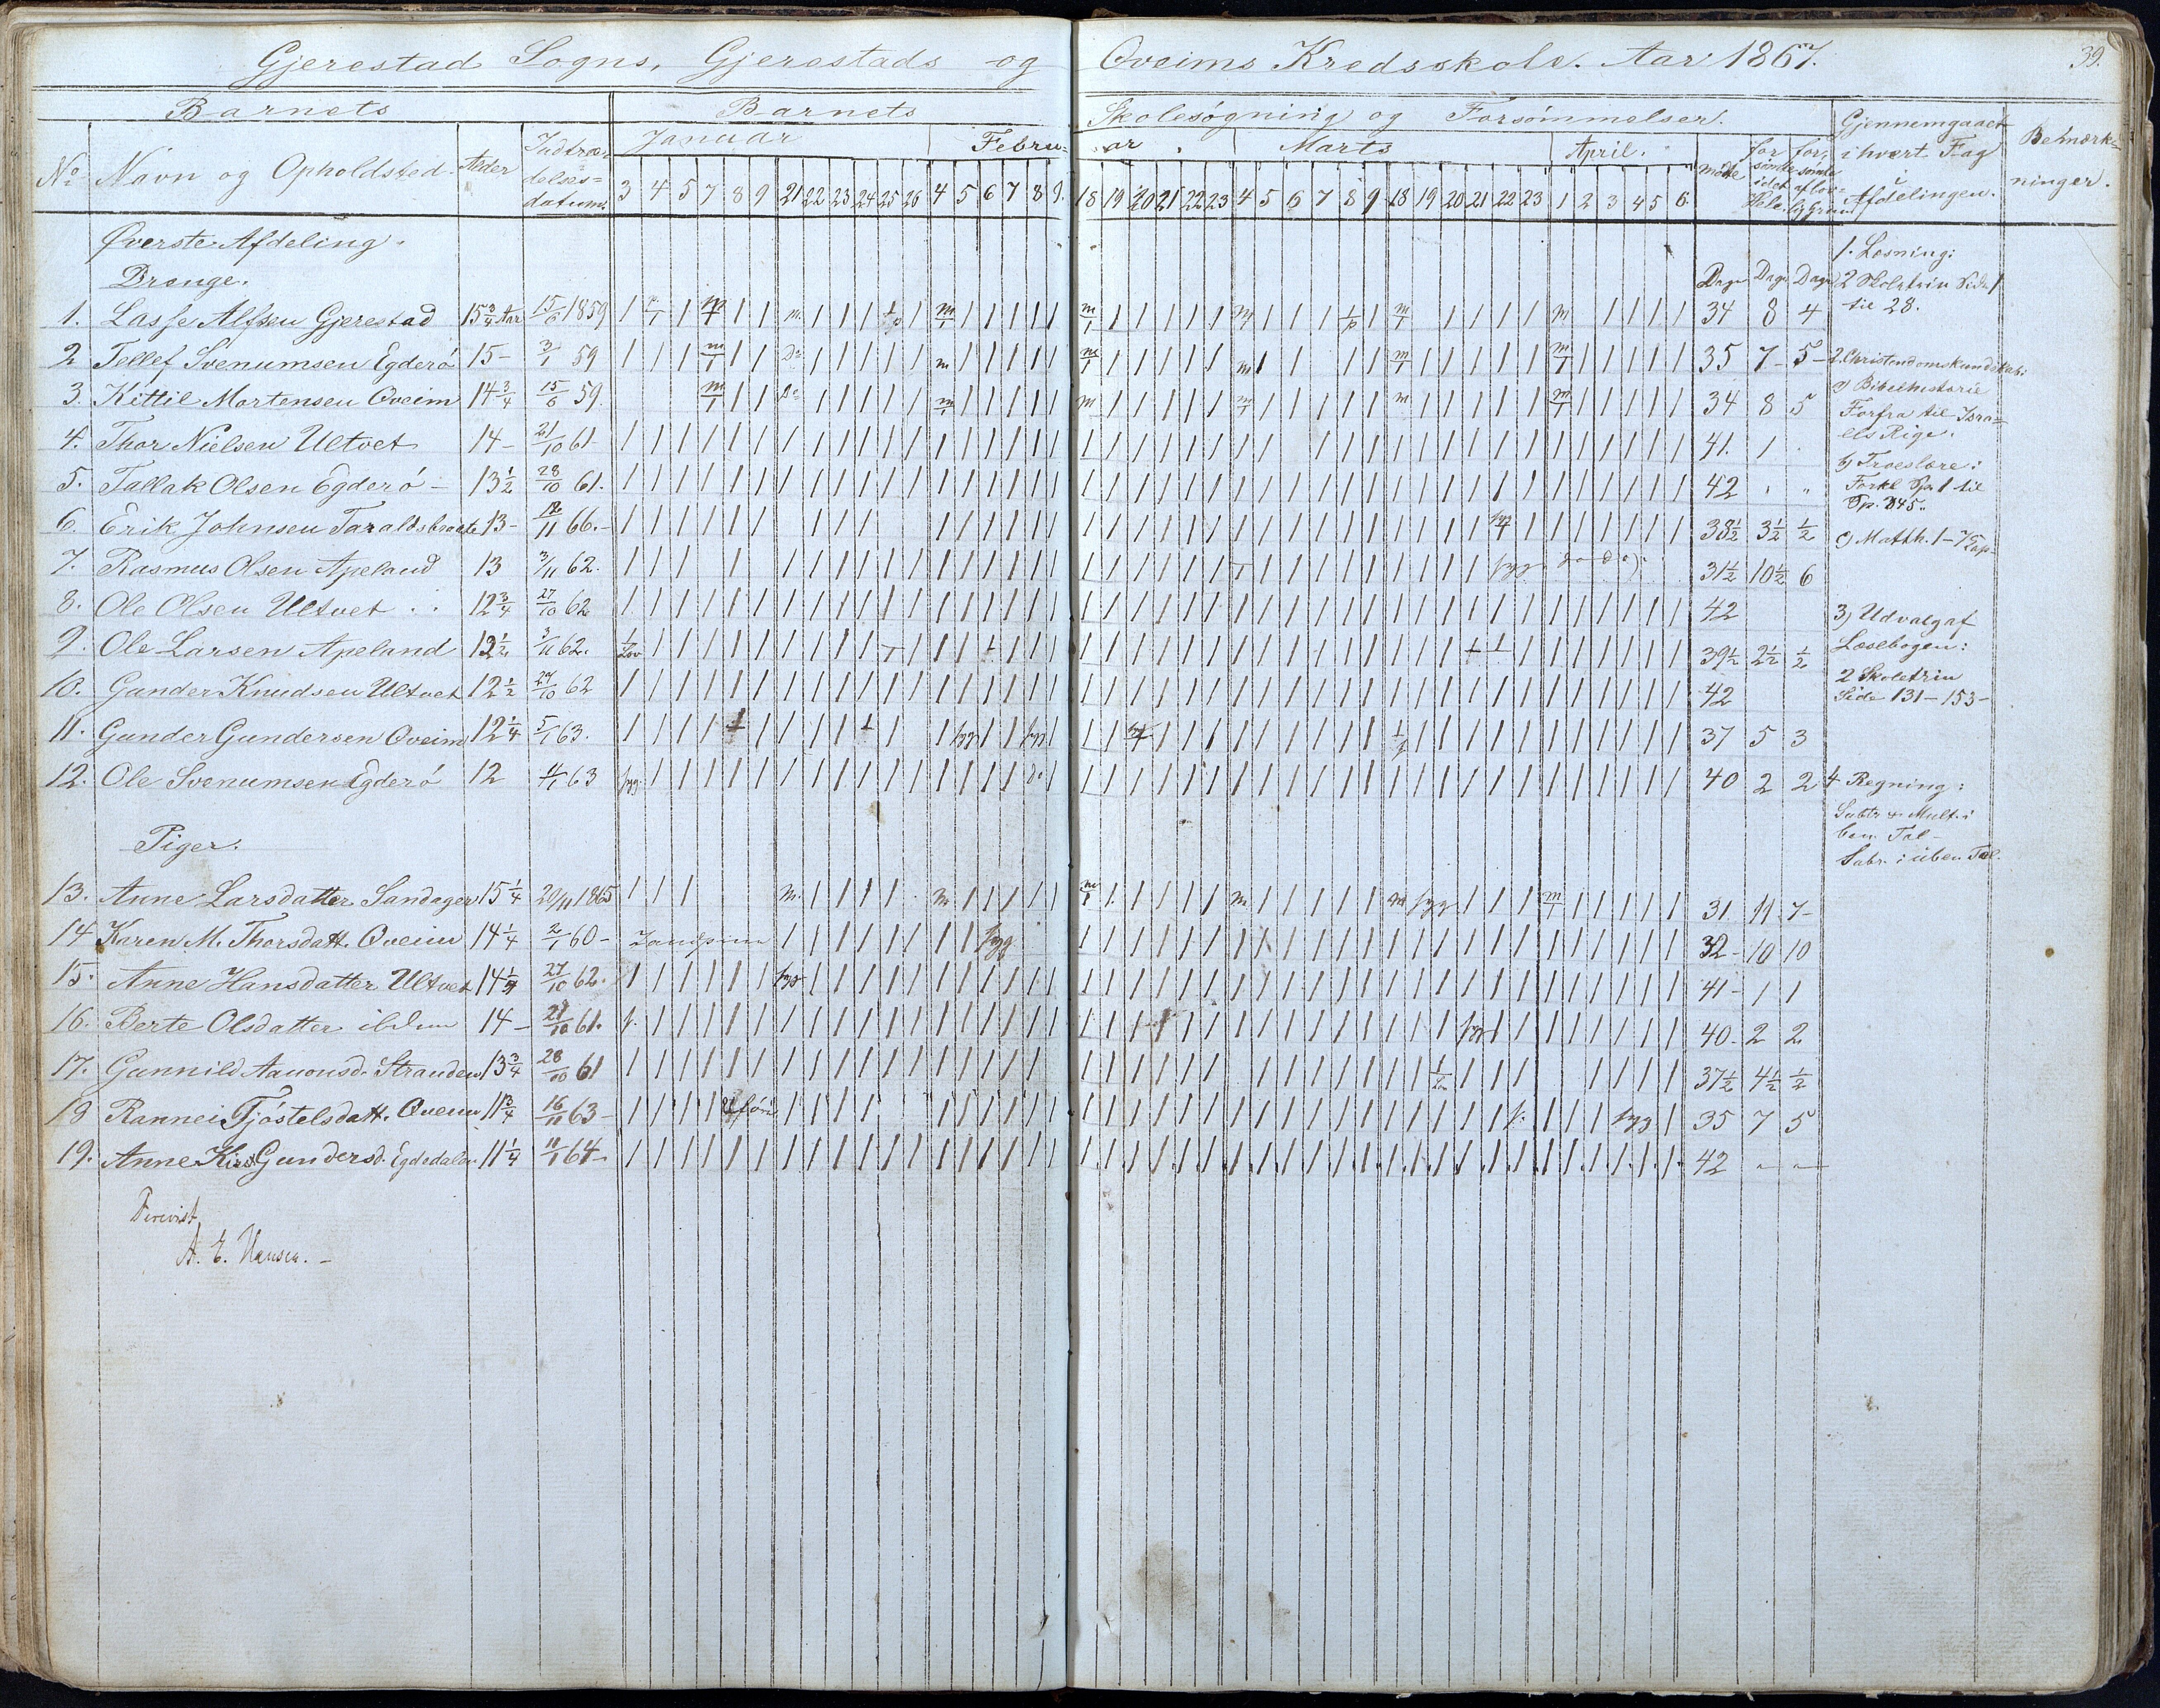 Gjerestad Sogns, Gjerestads og Oveims Kredsskole. Aar 1867.
39.
Barnets Barnets Skolesøgning og Forsømmelser.
Gjennemgaaet i hvert Fag i Afdelingen.
Bemærkninger.
No Navn og Opholdsted. Alder Indtrædelsesdatum.
Januar Februar. Marts April.
3 4 5 7 8 9 21 22 23 24 25 26 4 5 6 7 8 9. 18 19 20 21 22 23 4 5 6 7 8 9 18 19 20 21 22 23 1 2 3 4 5 6
mødte forsømte i det Hele forsømte af lovlig Grund
Øverste Afdeling.
Drenge. Dage Dage Dage
1. Lasse Alfsen Gjerestad 15 3/4 Aar 15/6 1859 34 8 4
2 Tellef Svenumsen Egderø 15- 3/1 59 35 7- 5-
3. Kittil Mortensen Oveim 14 3/4 15/6 59. 34 8 5
4. Thor Nielsen Ultvet 14- 21/10 61- 41. 1
5. Tallak Olsen Egderø- 13 1/2 28/10 61. 42 " "
6. Erik Johnsen Taraldsbraate 13- 12/11 66.- 38 1/2 3 1/2 1/2
7. Rasmus Olsen Apeland 13 3/11 62. 31 1/2 10 1/2 6
8. Ole Olsen Ultvet 12 3/4 27/10 62 42
9. Ole Larsen Apeland 12 1/2 3/11 62. 39 1/2 2 1/2 1/2
10. Gunder Knudsen Ultvet 12 1/2 27/10 62 42
11. Gunder Gundersen Oveim 12 1/4 5/1 63. 37 5 3
12. Ole Svenumsen Egderø 12 4/1 63 40 2 2
Piger.
13. Anne Larsdatter Sandager 15 1/4 20/11 1865 31 11 7-
14 Karen M. Thorsdatt. Oveim 14 1/4 2/1 60- 32- 10 10
15. Anne Hansdatter Ultvet 14 1/4 27/10 62. 41- 1 1
16. Berte Olsdatter ibidem 14- 21/10 61. 40- 2 2
17. Gunnild Aanonsd. Stranden 13 3/4 28/10 61 37 1/2 4 1/2 1/2
18 Rannei Tjøstelsdatt. Oveim 11 3/4 16/11 63- 35 7 5
19. Anne Kirst. Gundersd. Egdedalen 11 1/4 11/1 64- 42 - -
1. Læsning:
2 Skoletrin Side 1
til 28.
2. Christendomskundskab:
a) Bibelhistorie
Forfra til Israels Rige.
b) Troeslære:
Forkl Sp. 1 til
Sp. 345..
c) Matth. 1-7 Cap-
3) Udvalg af
Læsebogen:
2 Skoletrin
Side 131-153-
4 Regning:
Subtr & Mult. i
ben. Tal-
Subr. i üben Tal.
A. E. Hansen.-